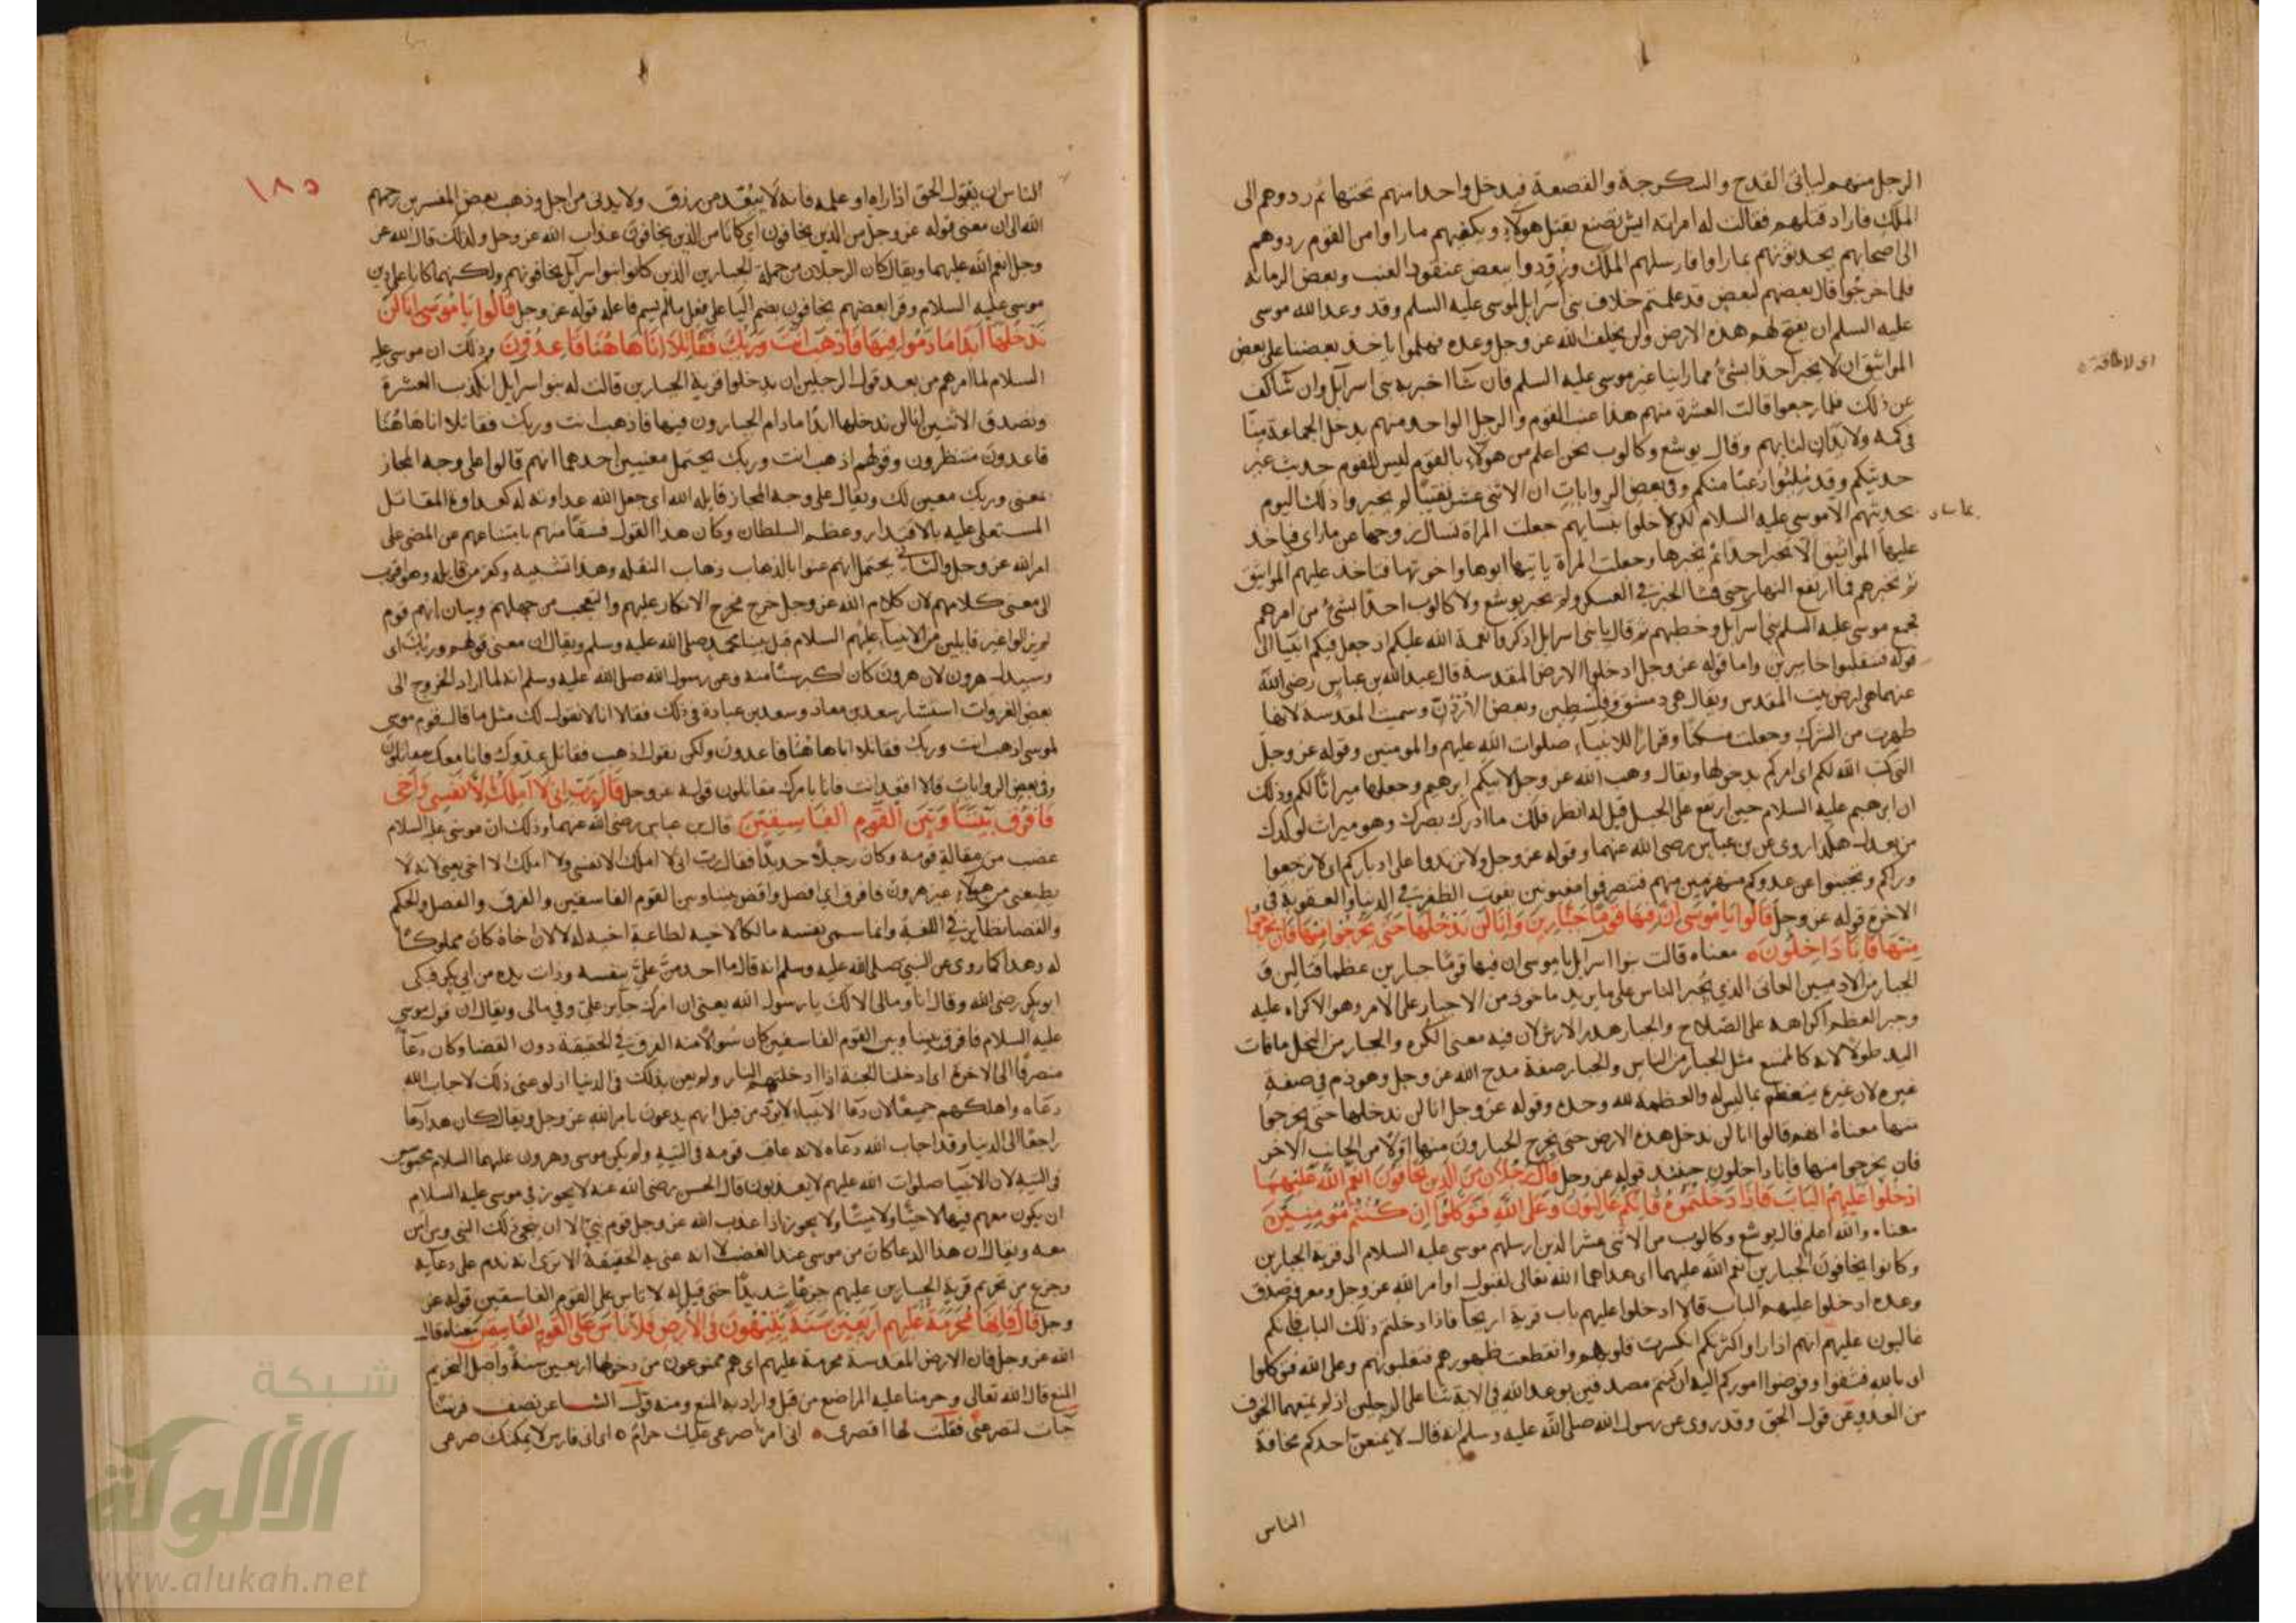 الرجل منهم لياتى القدح والسكرجة والقصعة فيدخل واحدا منهم تحتها ثم ردوهم الى
الملك فاراد قتلهم فقالت له امراته ايش تصنع بقتل هولاء ويكفيهم ما راوا من القوم ردوهم
الى اصحابهم يحدثونهم بما راوا فارسلهم الملك وزودوا ببعض عنقود العنب وبعض الرمانه
فلما خرجوا قال بعضهم لبعض قد علمتم خلاف بنى اسرايل لموسى عليه السلم وقد وعد الله موسى
عليه السلم ان يفتح لهم هذه الارض ولن يخلف الله عز وجل وعده فهلموا ياخذ بعضنا على بعض
المواثيق ان لا يخبر احدا بشئ مما راينا غير موسى عليه السلم فان شا اخبر به بنى اسرآيل وان شا كف
عن ذلك فلما رجعوا قالت العشرة منهم هذا عنب القوم والرجل الواحد منهم يدخل الجماعة منا
فى كمه ولا يدان لنا بهم وقال يوشع وكالوب نحن اعلم من هولاء بالقوم ليس للقوم حديث غير
حديثكم وقد ملئوا رعبا منكم وفى بعض الروايات ان الاثنى عشر نقيبا لم يخبروا ذلك اليوم
بحديثهم الا موسى عليه السلام لكن لما خلوا بنسايهم جعلت المراة تسال زوجها عن ما راى فياخذ
عليها المواثيق الا تخبر احدا ثم يخبرها وجعلت المراة ياتيها ابوها واخوتها فتاخذ عليهم المواثيق
ثم تخبرهم فما ارتفع النهار حتى فشا الخبر فى العسكر ولم يخبر يوشع ولا كالوب احدا بشئ من امرهم
فجمع موسى عليه السلم بنى اسرآيل وخطبهم ثم قال يا بنى اسرايل اذكروا نعمة الله عليكم اذ جعل فيكم انبيا الى
قوله فتنقلبوا خاسرين واما قوله عز وجل ادخلوا الارض المقدسة قال عبد الله بن عباس رضى الله
عنهما هى ارض بيت المقدس ويقال هى دمشق وفلسطين وبعض الاردن وسميت المقدسة لانها
طهرت من الشرك وجعلت مسكنا وقرارا للانبياء صلوات الله عليهم والمومنين وقوله عز وجل
التى كتب الله لكم اى امركم بدخولها ويقال وهب الله عز وجل لابيكم ابرهيم وجعلها ميراثا لكم وذلك
ان ابرهيم عليه السلام حين ارتفع على الجبل قيل له انظر فلك ما ادرك بصرك وهو ميراث لولدك
من بعدك هكذا روى عن بن عباس رضى الله عنهما وقوله عز وجل ولا ترتدوا على ادباركم اى لا ترجعوا
وراكم وتجبنوا عن عدوكم منهزمين منهم فتنصرفوا مغبونين بفوت الظفر فى الدنيا والعقوبة فى
الاخرة قوله عز وجل قالوا يا موسى ان فيها قوما جبارين وانا لن ندخلها حتى يخرجوا منها فان يخرجوا
منها فانا داخلون معناه قالت بنوا اسرآيل يا موسى ان فيها قوما جبارين عظما قتالين ف
الجبار من الادميين العاتى الذى يجبر الناس على ما يريد ماخوذ من الاجبار على الامر وهو الاكراه عليه
وجبر العظم اكراهه على الصلاح والجبار هدر الارش لان فيه معنى الكره والجبار من النخل ما فات
اليد طولا لانه كالممتنع مثل الجبار من الناس والجبار صفة مدح الله عز وجل وهو ذم فى صفة
غيره لان غيره يتعظم بما ليس له والعظمة لله وحده وقوله عز وجل انا لن ندخلها حتى يخرجوا
منها معناه انهم قالوا انا لن ندخل هذه الارض حتى يخرج الجبارون منها اولا من الجانب الاخر
فان يخرجوا منها فانا داخلون حينئذ قوله عز وجل قال رجلان من الذين يخافون انعم الله عليهما
ادخلوا عليهم الباب فاذا دخلتموه فانكم غالبون وعلى الله فتوكلوا ان كنتم مؤمنين
معناه والله اعلم قال يوشع وكالوب من الاثنى عشر الذين ارسلهم موسى عليه السلام الى قرية الجبارين
وكانوا يخافون الجبارين انعم الله عليهما اى هداهما الله تعالى لقبول اوامر الله عز وجل ومعرفة صدق
وعده ادخلوا عليهم الباب قالا ادخلوا عليهم باب قرية اريحآ فاذا دخلتم ذلك الباب فانكم
غالبون عليهم انهم اذا راوا كثرتكم انكسرت قلوبهم وانقطعت ظهورهم فتغلبونهم وعلى الله فتوكلوا
اى بالله فثقوا وفوضوا اموركم اليه ان كنتم مصدقين بوعد الله فى الاية ثنا على الرجلين اذ لم يمنعهما الخوف
من العدو عن قول الحق وقد روى عن رسول الله صلى الله عليه وسلم انه قال لا يمنعن احدكم مخافة
الناس
اى لا طاقة
الناس ان يقول الحق اذا راه او علمه فانه لا يبعد من رزق ولا يدنى من اجل وذهب بعض المفسرين رحمهم
الله الى ان معنى قوله عز وجل من الذين يخافون اى كانا من الذين يخافون عذاب الله عز وجل ولذلك قال الله عز
وجل انعم الله عليهما ويقال كان الرجلان من جملة الجبارين الذين كانوا بنوا اسرآيل يخافونهم ولكنهما كانا على دين
موسى عليه السلام وقرا بعضهم يخافون بضم اليا على فعل ما لم يسم فاعله قوله عز وجل قالوا يا موسى انا لن
ندخلها ابدا ما داموا فيها فاذهب انت وربك فقاتلا انا هاهنا قاعدون وذلك ان موسى عليه
السلام لما امرهم من بعد قول الرجلين ان يدخلوا قرية الجبارين قالت له بنوا اسرآيل انكذب العشرة
ونصدق الاثنين انا لن ندخلها ابدا ما دام الجبارون فيها فاذهب انت وربك فقاتلا انا هاهنا
قاعدون منتظرون وقولهم اذهب انت وربك يحتمل معنيين احدهما انهم قالوا على وجه المجاز
بمعنى وربك معين لك ويقال على وجه المجاز قاتله الله اى جعل الله عداوته له كعداوة المقاتل
المستعلى عليه بالاقتدار وعظم السلطان وكان هذا القول فسقا منهم بامتناعهم عن المضى على
امر الله عز وجل والثانى يحتمل انهم عنوا بالذهاب ذهاب النقلة وهذا تشبيه وكفر من قايله وهو اقرب
الى معنى كلامهم لان كلام الله عز وجل خرج مخرج الانكار عليهم والتعجب من جهلهم وبيان انهم قوم
لم يزالوا غير قابلين من الانبياء عليهم السلام قبل نبينا محمد صلى الله عليه وسلم ويقال ان معنى قولهم وربك اى
وسيدك هرون لان هرون كان اكبر سنا منه وعن رسول الله صلى الله عليه وسلم انه لما اراد الخروج الى
بعض الغزوات استشار سعد بن معاذ وسعد بن عبادة فى ذلك فقالا انا لا نقول لك مثل ما قال قوم موسى
لموسى اذهب انت وربك فقاتلا انا هاهنا قاعدون ولكن نقول اذهب فقاتل عدوك فانا معك مقاتلون
وفى بعض الروايات قالا اقعد انت فانا بامرك مقاتلون قوله عز وجل قال رب انى لا املك الا نفسى واخى
فافرق بيننا وبين القوم الفاسقين قال بن عباس رضى الله عنهما وذلك ان موسى عليه السلام
غضب من مقالة قومه وكان رجلا حديدا فقال رب انى لا املك الا نفسى ولا املك الا اخى يعنى لانه لا
يطيعنى من هولاء غير هرون فافرق اى افصل واقض بيننا وبين القوم الفاسقين والفرق والفصل والحكم
والقضا نظاير فى اللغة وانما سمى نفسه مالكا لاخيه لطاعة اخيه له لا لان اخاه كان مملوكا
له وهذا كما روى عن النبى صلى الله عليه وسلم انه قال ما احد من على بنفسه وذات يده من ابى بكر فبكى
ابو بكر رضى الله وقال انا ومالى الا لك يا رسول الله يعنى ان امرك جايز على وفى مالى ويقال ان قول موسى
عليه السلام فافرق بيننا وبين القوم الفاسقين كان سوالا منه الفرق فى الحقيقة دون القضا وكان دعآ
منصرفا الى الاخرة اى ادخلنا الجنة اذا ادخلتهم النار ولم يعن بذلك فى الدنيا اذ لو عنى ذلك لاجاب الله
دعاه واهلكهم جميعا لان دعا الانبياء لا يرد من قبل انهم يدعون بامر الله عز وجل ويقال كان هذا دعا
راجعا الى الدنيا وقد اجاب الله دعاه لانه عاقب قومه فى التيه ولم يكن موسى وهرون عليهما السلام محبوسين
فى التيه لان الانبيا صلوات الله عليهم لا يعذبون قال الحسن رضى الله عنه لا يجوز فى موسى عليه السلام
ان يكون معهم فيها لا حيا ولا ميتا ولا يجوز اذا عذب الله عز وجل قوم نبى الا ان ينجى ذلك النبى ومن امن
معه ويقال ان هذا الدعا كان من موسى عند الغضب لا انه عنى به الحقيقة الا ترى انه ندم على دعايه
وجزع من تحريم قرية الجبارين عليهم جزعا شديدا حتى قيل له لا تاس على القوم الفاسقين قوله عز
وجل قال فانها محرمة عليهم اربعين سنة يتيهون فى الارض فلا تاس على القوم الفاسقين معناه قال
الله عز وجل فان الارض المقدسة محرمة عليهم اى هم ممنوعون من دخولها اربعين سنة واصل التحريم
المنع قال الله تعالى وحرمنا عليه المراضع من قبل واراد به المنع ومنه قول الشاعر يصف فرسا
جآت لتصرعنى فقلت لها اقصرى انى امرؤ صرعى عليك حرام اى انى فارس لا يمكنك صرعى
١٨٥
شبكة
الألوكة
www.alukah.net